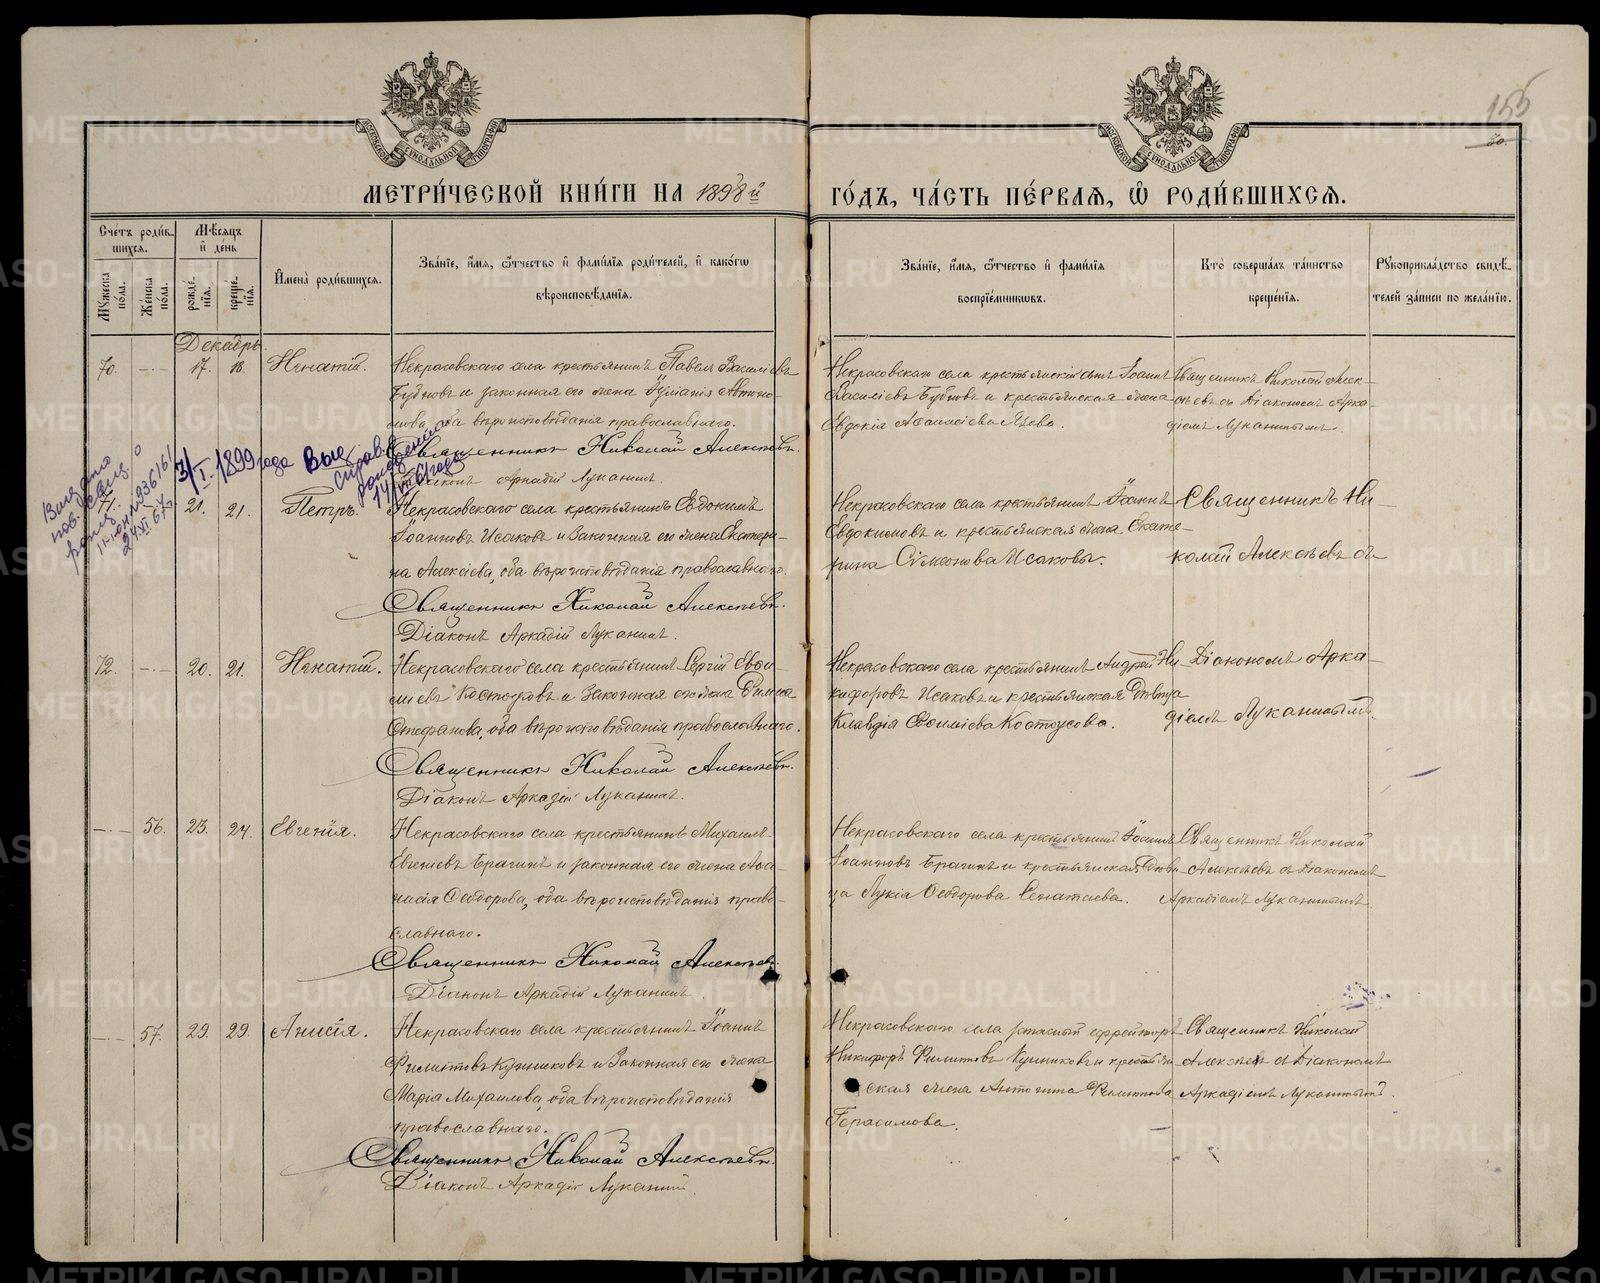 155
30.
МЕТРИ́ЧЕСКОЙ КНИ́ГИ НА 1898й
ГО́ДЪ, ЧА́СТЬ ПЕ́РВАѦ, Ѡ҆ РОДИ́ВШИХСѦ.
Сче́тъ роди́вшихсѧ.
Мѣ́сѧцъ и҆ де́нь
И҆мена̀ роди́вшихсѧ.
Зва́нїе, и҆́мѧ, ѻ҆́тчество и҆ фами́лїѧ роди́телей, и҆ како́гѡ
вѣроисповѣ́данїѧ.
Зва́нїе, и҆́мѧ, ѻ҆́тчество и҆ фами́лїѧ
воспрїе́мникѡвъ.
Кто̀ соверша́лъ та́инство
креще́нїѧ.
Рꙋкоприкла́дство свидѣ́-
телей за́писи по жела́нїю.
Мꙋ́жеска по́ла.
Же́нска по́ла.
рожде́-нїѧ.
креще́-нїѧ.
Декабрь.
70. 17. 18. Игнатій.
Некрасовскаго села крестьянинъ Павелъ Василіевъ
Бубновъ и законная его жена Іуліанія Автоно-
мова, оба вѣроисповѣданія православнаго.
Священникъ Николай Алексѣевъ.
Діаконъ Аркадій Луканинъ.
Некрасовскаго села крестьянскій сынъ Іоаннъ
Василіевъ Бубновъ и крестьянская жена
Евдокія Аѳанасіева
Священникъ Николай Алек-
сѣевъ съ Діакономъ Арка-
діемъ Луканинымъ.
3/I 1899 года Выд. справка
14/VII 61 года
Выдано пов. свид. о рожд.
24.VI.67г
71. 21. 21. Петръ.
Некрасовскаго села крестьянинъ Евдокимъ
Іоанновъ Исаковъ и законная его жена Екатери-
на Алексіева, оба вѣроисповѣданія православнаго.
Священникъ Николай Алексѣевъ.
Діаконъ Аркадій Луканинъ.
Некрасовскаго села крестьянинъ Іоаннъ
Евдокимовъ и крестьянская жена Екате-
рина Сѵмеонова Исаковы.
Священникъ Ни-
колай Алексѣевъ съ
72. 20. 21. Игнатій.
Некрасовскаго села крестьянинъ Сергій Евѳи-
міевъ Костоусовъ и законная его жена
Стефанова, оба вѣроисповѣданія православнаго.
Священникъ Николай Алексѣевъ.
Діаконъ Аркадій Луканинъ.
Некрасовскаго села крестьянинъ Андрей Ни-
кифоровъ Исаковъ и крестьянская дѣвица
Клавдія Евѳиміева Костоусова.
Діакономъ Арка-
діемъ Луканинымъ.
56. 23. 24. Евгенія.
Некрасовскаго села крестьянинъ Михаилъ
Евгеніевъ Брагинъ и законная его жена Аѳа-
насія Ѳеодорова, оба вѣроисповѣданія право-
славнаго.
Священникъ Николай Алексѣевъ.
Діаконъ Аркадій Луканинъ.
Некрасовскаго села крестьянинъ Іоаннъ
Іоанновъ Брагинъ и крестьянская дѣви-
ца Лукія Ѳеодорова
Священникъ Николай
Алексѣевъ съ Діакономъ
Аркадіемъ Луканинымъ.
57. 29. 29. Анисія.
Некрасовскаго села крестьянинъ Іоаннъ
Филипповъ Кушниковъ и законная его жена
Марія Михаилова, оба вѣроисповѣданія
православнаго.
Священникъ Николай Алексѣевъ.
Діаконъ Аркадій Луканинъ.
Некрасовскаго села запасный ефрейторъ
Никифоръ Филипповъ Кушниковъ и крестьян-
ская жена Антонина Филиппова
Герасимова.
Священникъ Николай
Алексѣевъ съ Діакономъ
Аркадіемъ Луканинымъ.
METRIKI.GASO-URAL.RU